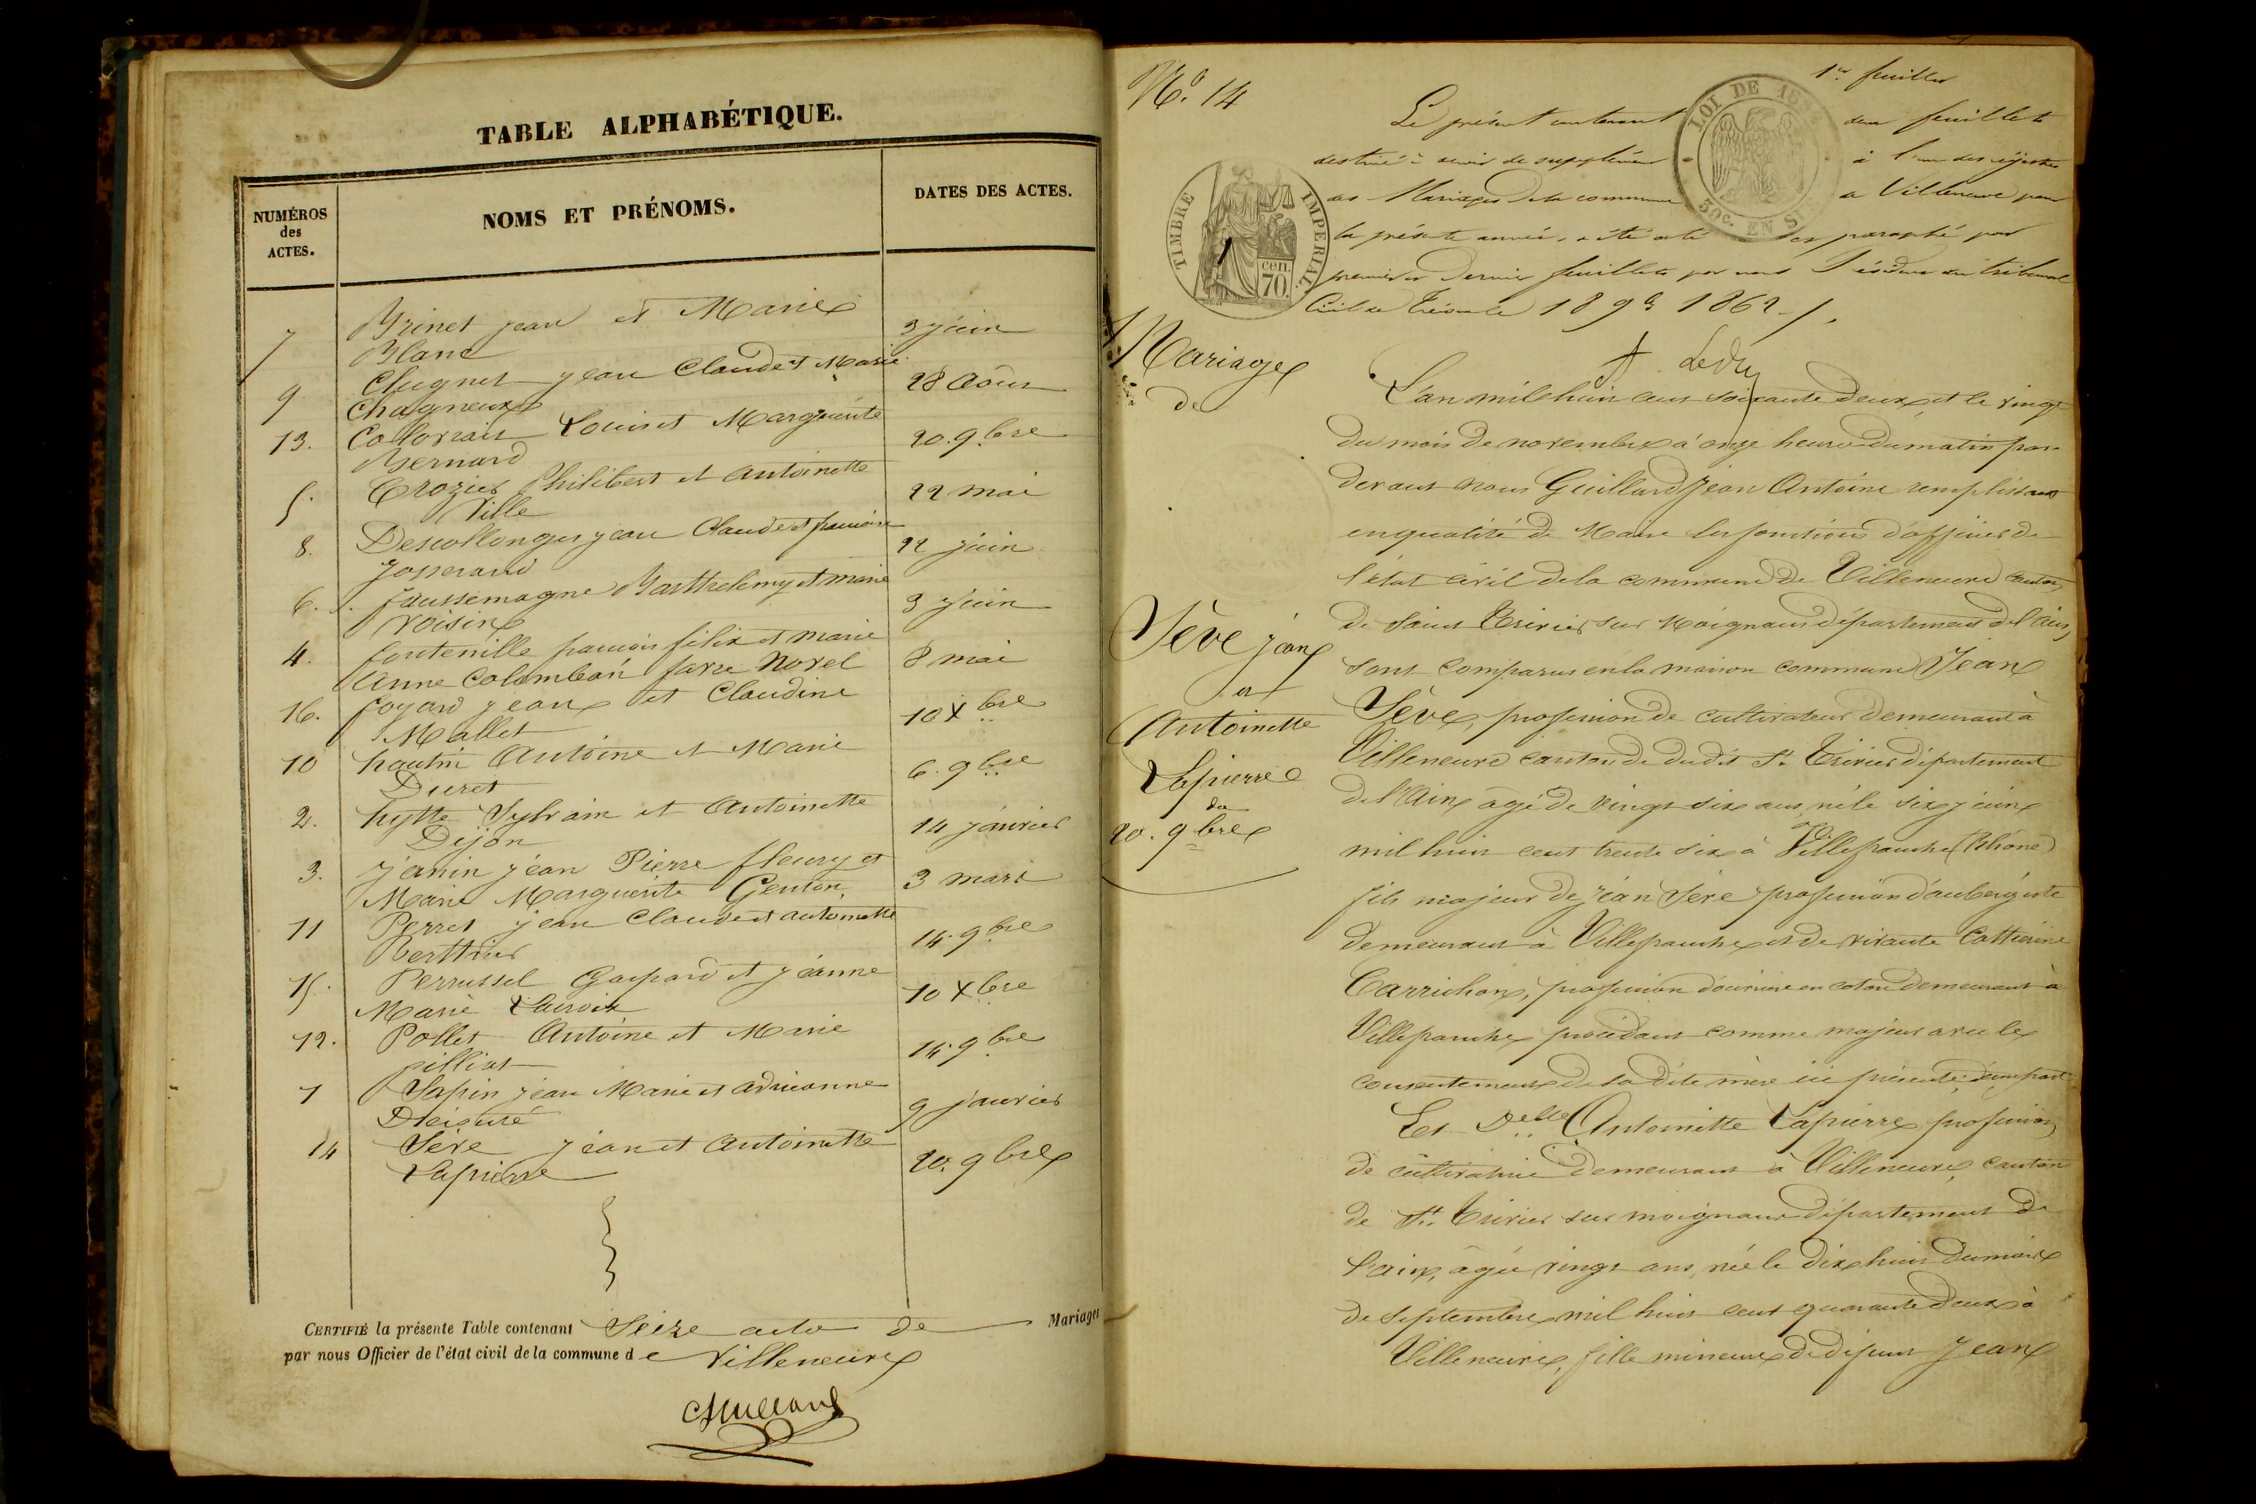 TABLE ALPHABÉTIQUE.
NUMÉROS
des
ACTES.
NOMS ET PRÉNOMS.
DATES DES ACTES.
7 Brinet jean et Marie 3 juin
Blanc
9 Clugnet jean Claude et Marie 28 Août
Chagneux
13. Collovrais Louis et Marguerite 20. 9bre
Bernard
5. Crozier Philibert et Antoinette 22 mai
Ville
8. Descollonges jean Claude et 22 juin
Josserand
6. Faussemagne Barthelemy et marie 3 Juin
Voisin
4. fontenille félix et marie 8 mai
Anne Colomban farre Norel
16. foyard jean et Claudine 10 Xbre
Mallet
10 hautin Antoine et Marie 6. 9bre
Duret
2. hytte Sylvain et Antoinette 14 janvier
Dijon
3. janin jean Pierre fleury et 3 mars
Marie Marguerite Genton
11 Perret jean Claude et antoinette 14. 9bre
Berthier
15. Perrussel Gaspard et jeanne 10 Xbre
Marie Lacroix
12. Pollet Antoine et Marie 14. 9bre
pilliat
1 Sapin jean Marie et adrieanne 9 janvier
14 Sève jean et Antoinette 20. 9bre
Lapierre
CERTIFIÉ la présente Table contenant Seize actes de Mariages
par nous Officier de l'état civil de la commune de Villeneuve
Guillard
No. 14
1er feuillet
Le présent contenant deux feuillets
destiné à servir de supplément à l'un des registres
des Mariages de la commune de Villeneuve pour
la présente année, a été coté et paraphé par
premier et dernier feuillets par nous Président du tribunal
Civil de Trévoux le 18 9bre 1862 /.
LOI DE
50c. EN SUS
TIMBRE IMPERIAL
70 cen.
Mariage
de
Sève jean
et
Antoinette
Lapierre
du
20. 9bre
L'an mil huit cent soixante deux et le vingt
du mois de novembre à onze heures du matin par
devant nous Guillard Jean Antoine remplissant
en qualité de Maire les fonctions d'officier de
l'état civil de la commune de Villeneuve canton
de Saint Trivier sur Moignans département de l'Ain,
sont comparus en la maison commune Jean
Sève, profession de cultivateur demeurant à
Villeneuve canton de dudit St. Trivier département
de l'Ain âgé de vingt six ans, né le six juin
mil huit cent trente six à Villefranche (Rhône)
fils majeur de jean Sève profession d'aubergiste
demeurant à Villefranche et de vivante Catherine
Carrichon, profession d'ouvrière en coton demeurant à
Villefranche procédant comme majeur avec le
consentement de sa dite mère ici présente, d'une part
Et Delle Antoinette Lapierre profession
de cultivatrice demeurant à Villeneuve, canton
de St. Trivier sur moignans département de
l'ain, âgée vingt ans, née le dix huit du mois
de septembre mil huit cent quarante deux à
Villeneuve, fille mineure de défunt Jean